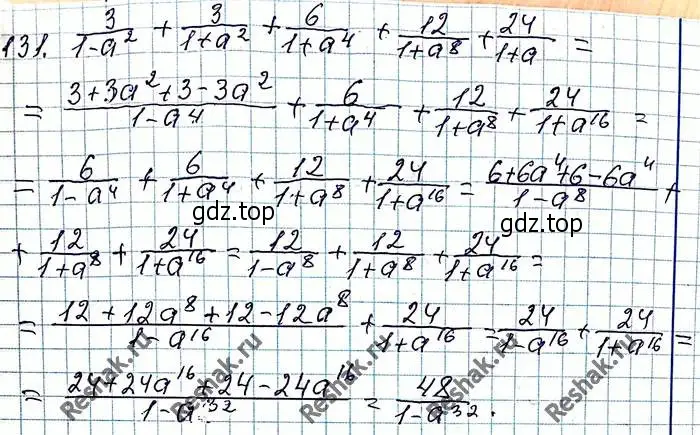 131. \frac{3}{1-a^2} + \frac{3}{1+a^2} + \frac{6}{1+a^4} + \frac{12}{1+a^8} + \frac{24}{1+a} =
= \frac{3+3a^2+3-3a^2}{1-a^4} + \frac{6}{1+a^4} + \frac{12}{1+a^8} + \frac{24}{1+a^{16}} =
= \frac{6}{1-a^4} + \frac{6}{1+a^4} + \frac{12}{1+a^8} + \frac{24}{1+a^{16}} = \frac{6+6a^4+6-6a^4}{1-a^8} +
gdz.top
+ \frac{12}{1+a^8} + \frac{24}{1+a^{16}} = \frac{12}{1-a^8} + \frac{12}{1+a^8} + \frac{24}{1+a^{16}} =
gdz.top
= \frac{12+12a^8+12-12a^8}{1-a^{16}} + \frac{24}{1+a^{16}} = \frac{24}{1-a^{16}} + \frac{24}{1+a^{16}} =
= \frac{24+24a^{16}+24-24a^{16}}{1-a^{32}} = \frac{48}{1-a^{32}}.
Reshak.ru
Reshak.ru
Reshak.ru
Reshak.ru